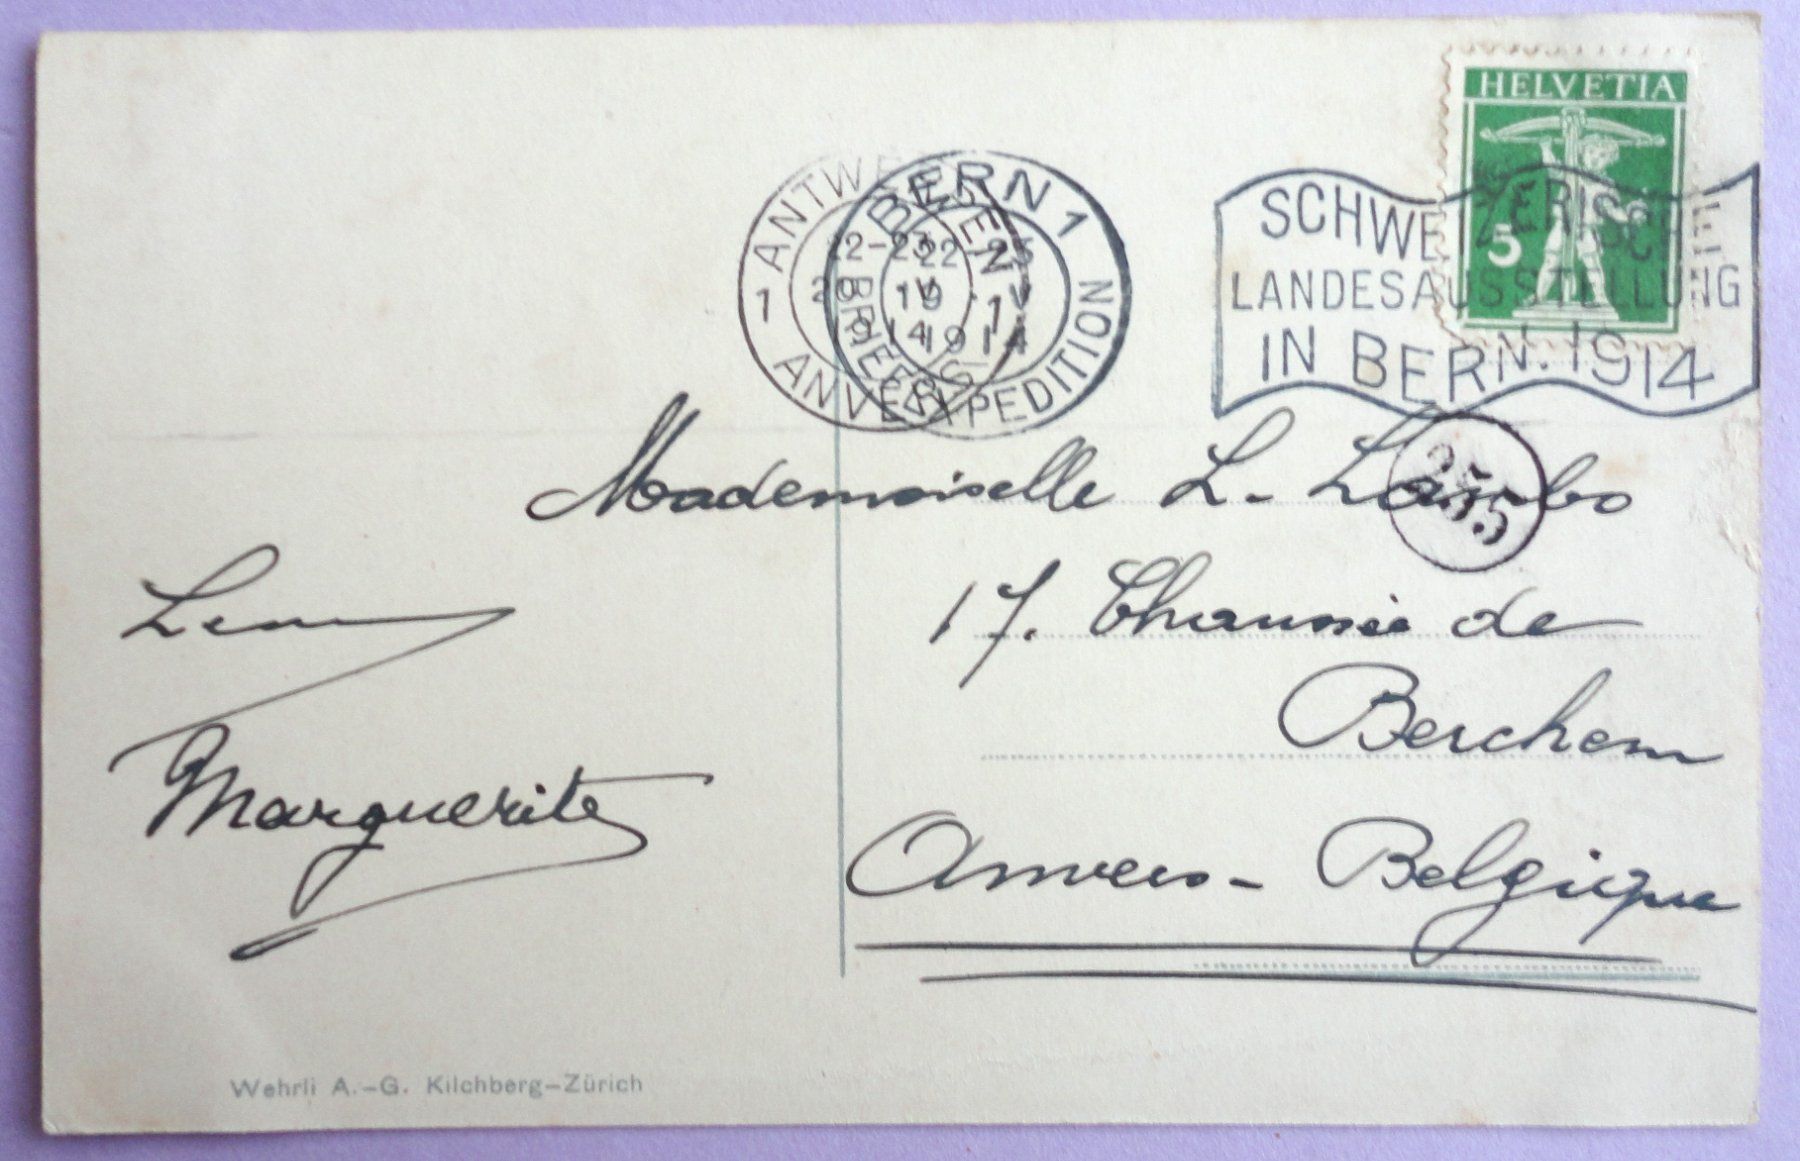 HELVETIA
5
SCHWEIZERISCHE
LANDESAUSSTELLUNG
IN BERN. 1914
BERN 1
22-23
19. V
1914
BRIEFEXPEDITION
ANTWERPEN 1
22-23
20 V
1914
1 ANVERS
255
Mademoiselle L. Lambo
17. Chaussée de
Berchem
Anvers - Belgique
Marguerite
Wehrli A.-G. Kilchberg-Zürich